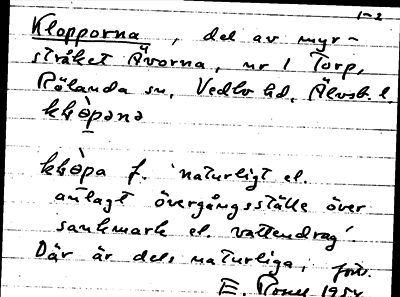 1-2
Klopporna, del av myr-
stråket Åvorna, nr 1 Torp,
Rölanda sn, Vedbo hd, Älvsb. l.
naturligt el.
anlagt övergångsställe över
sankmark el. vattendrag'
Där är dels naturliga,
E.